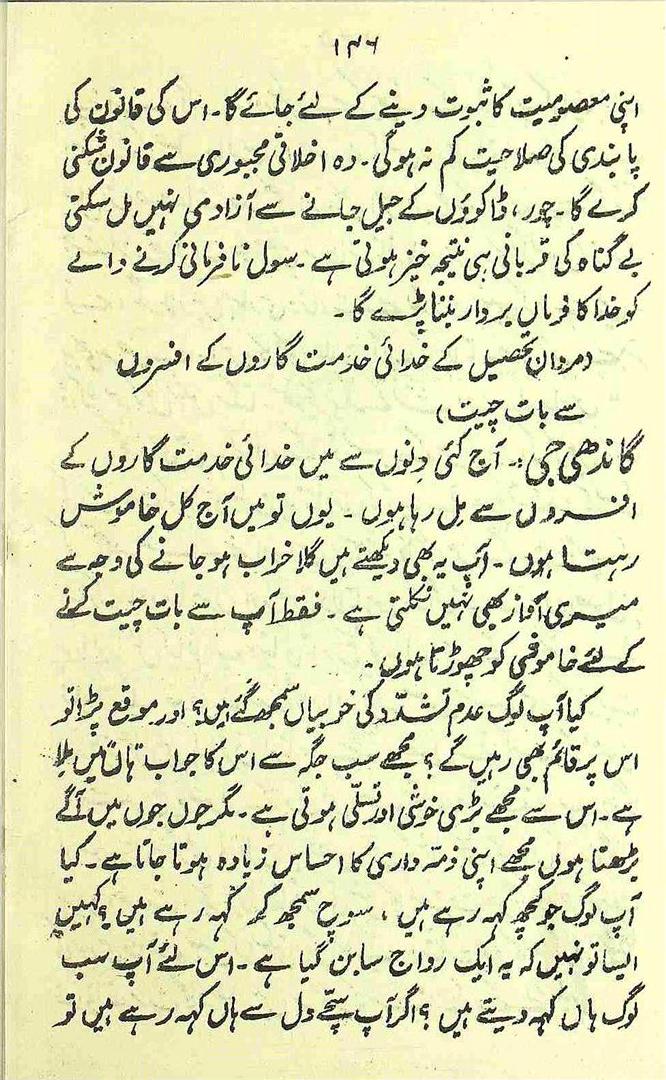 ۱۴۶
اپنی معصومیت کا ثبوت دینے کے لئے جائے گا۔ اس کی قانون کی
پابندی کی صلاحیت کم نہ ہوگی۔ وہ اخلاقی مجبوری سے قانون شکنی
کرے گا۔ چور، ڈاکوؤں کے جیل جانے سے آزادی نہیں مل سکتی
بے گناہ کی قربانی ہی نتیجہ خیز ہوتی ہے۔ سول نافرمانی کرنے والے
کو خدا کا فرماں بردار بننا پڑے گا۔
(مردان تحصیل کے خدائی خدمت گاروں کے افسروں
سے بات چیت)
گاندھی جی:۔ آج کئی دنوں سے میں خدائی خدمت گاروں کے
افسروں سے مل رہا ہوں۔ یوں تو میں آج کل خاموش
رہتا ہوں۔ آپ یہ بھی دیکھتے ہیں گلا خراب ہو جانے کی وجہ سے
میری آواز بھی نہیں نکلتی ہے۔ فقط آپ سے بات چیت کرنے
کے لئے خاموشی کو چھوڑتا ہوں۔
کیا آپ لوگ عدم تشدّد کی خوبیاں سمجھ گئے ہیں؟ اور موقع پڑا تو
اس پر قائم بھی رہیں گے؟ مجھے سب جگہ سے اس کا جواب ہاں میں ملا
ہے۔ اس سے مجھے بڑی خوشی اور تسلّی ہوتی ہے۔ مگر جوں جوں میں آگے
بڑھتا ہوں مجھے اپنی ذمّہ داری کا احساس زیادہ ہوتا جاتا ہے۔ کیا
آپ لوگ جو کچھ کہہ رہے ہیں، سوچ سمجھ کر کہہ رہے ہیں؟ کہیں
ایسا تو نہیں کہ یہ ایک رواج سا بن گیا ہے۔ اس لئے آپ سب
لوگ ہاں کہہ دیتے ہیں؟ اگر آپ سچّے دل سے ہاں کہہ رہے ہیں تو